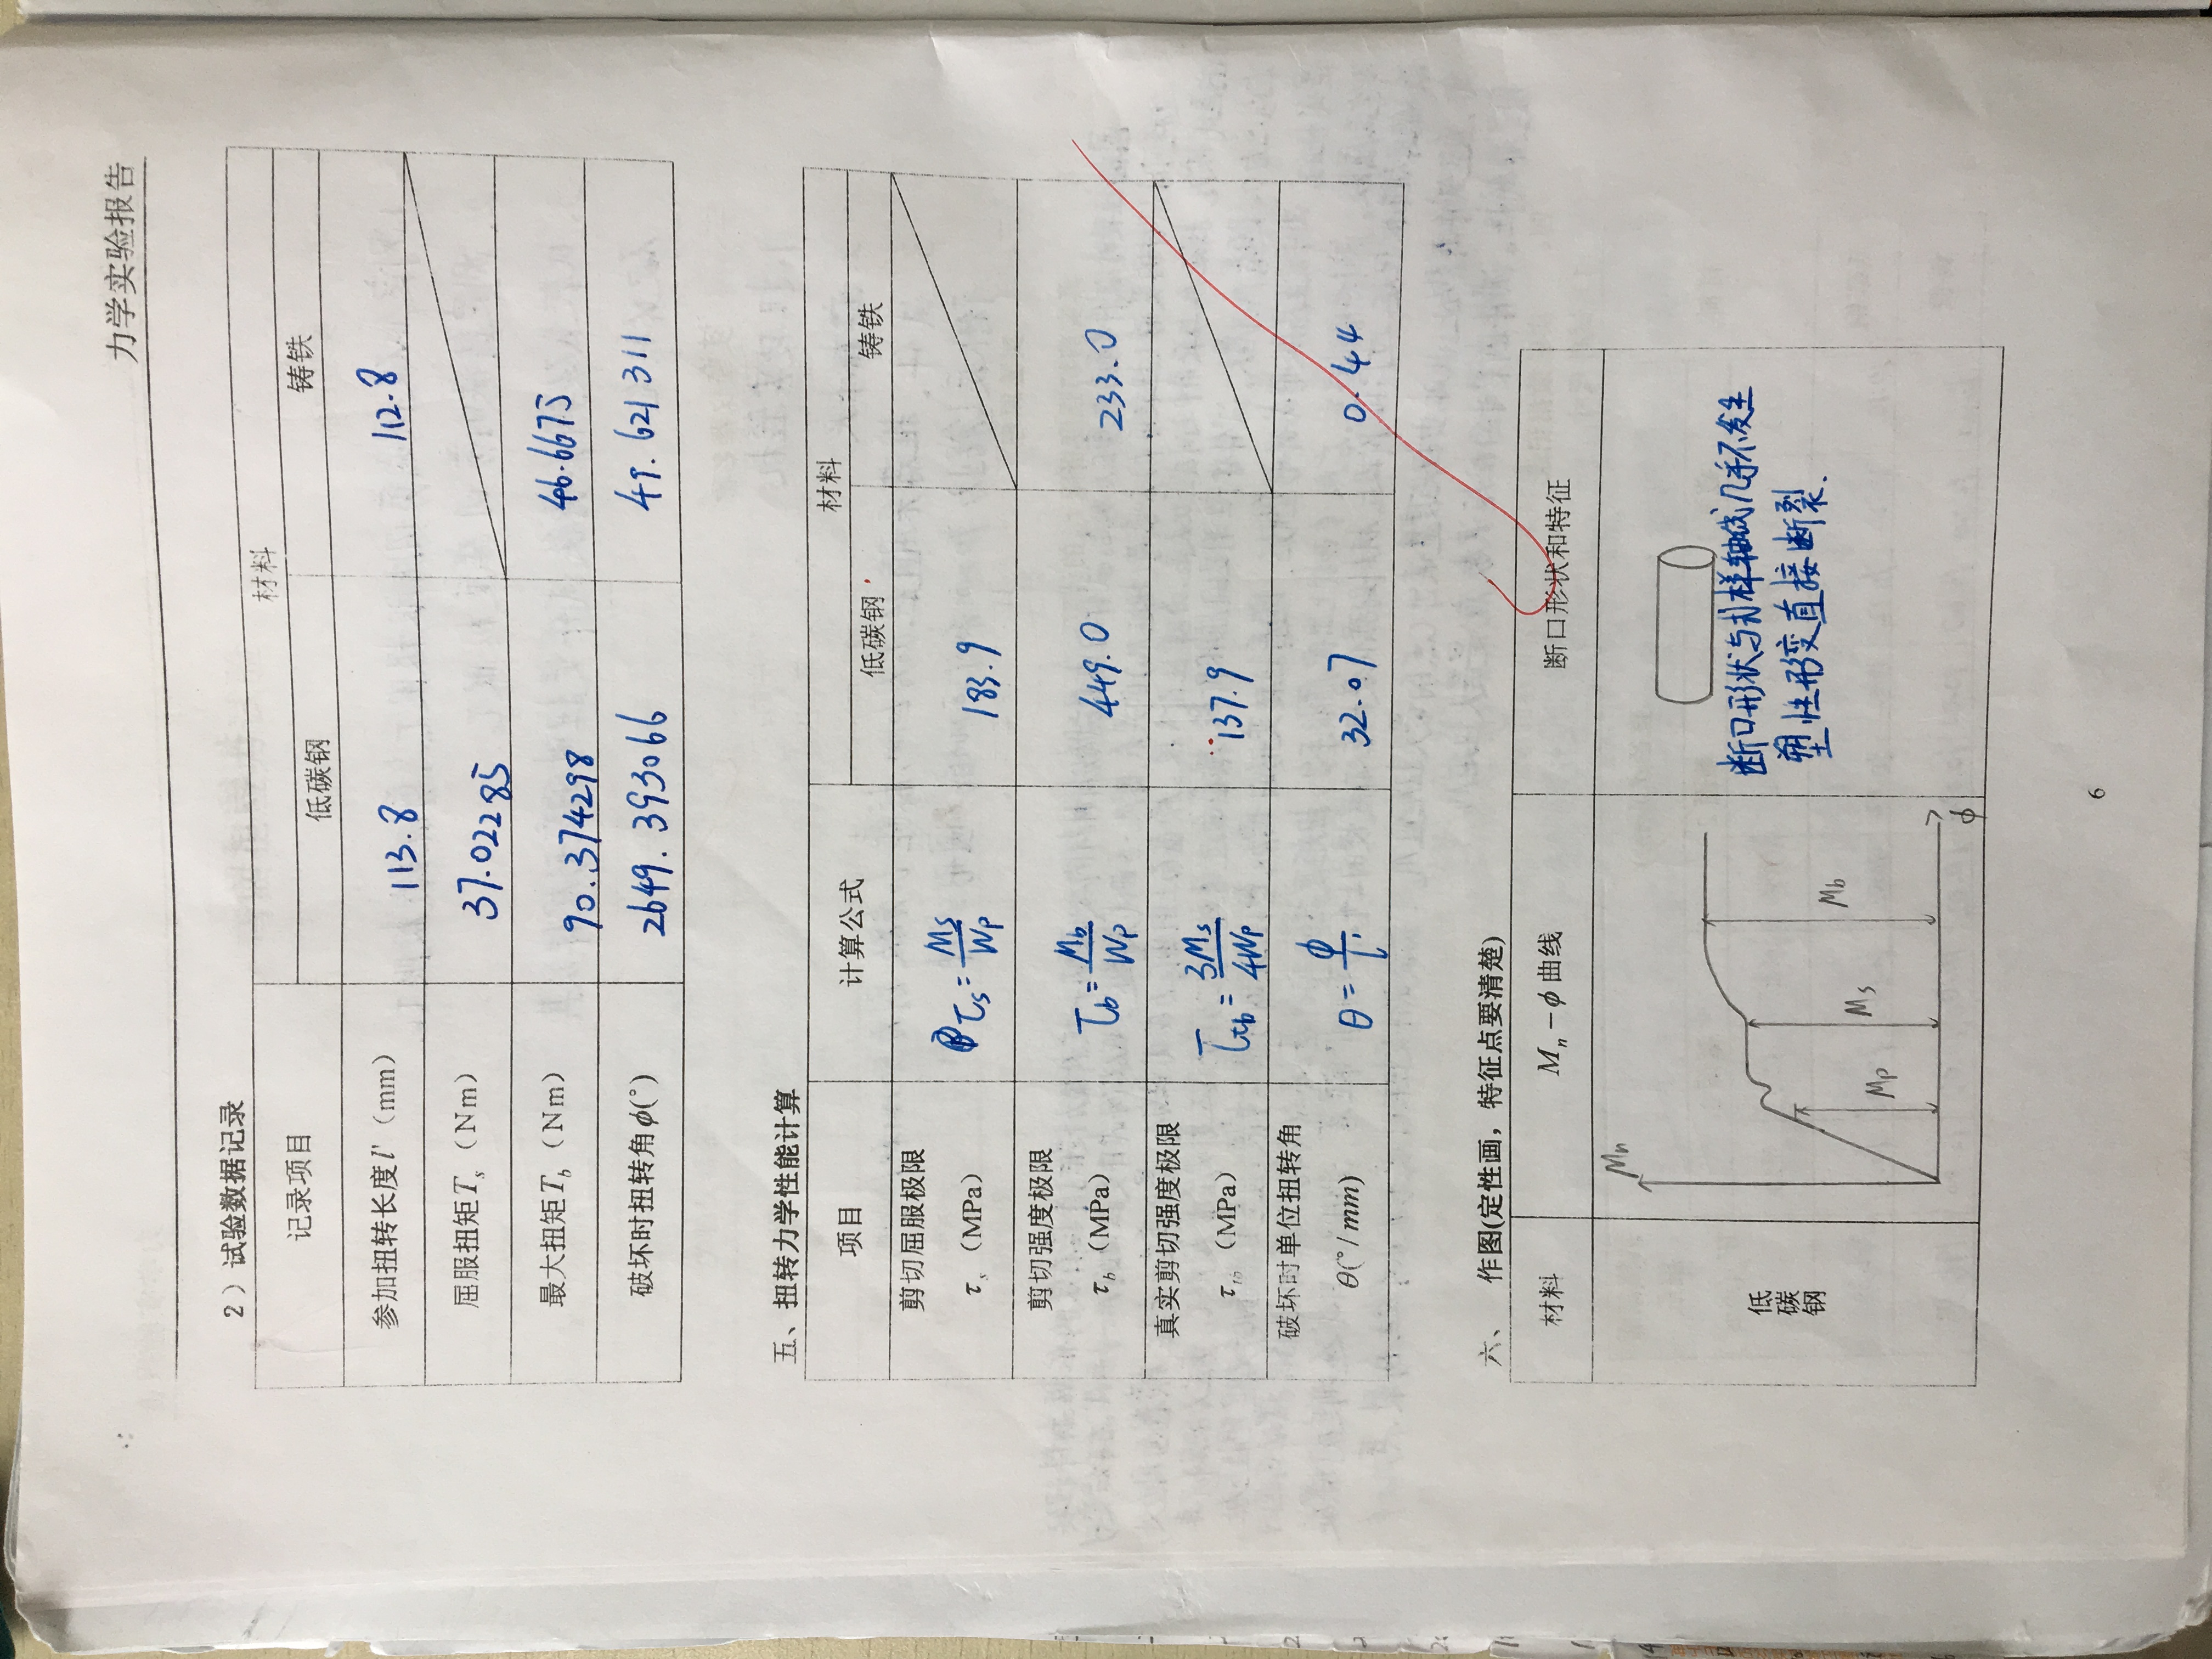 力学实验报告
2）试验数据记录
记录项目 材料
低碳钢 铸铁
参加扭转长度 l′（mm） 113.8 112.8
屈服扭矩 Tₛ（Nm） 37.02285
最大扭矩 T_b（Nm） 90.374298 46.6675
破坏时扭转角 φ(°) 2649.393066 49.621311
五、扭转力学性能计算
项目 计算公式 材料
低碳钢 铸铁
剪切屈服极限 τₛ（MPa） τₛ = Ms/Wp 183.9
剪切强度极限 τ_b（MPa） τ_b = Mb/Wp 449.0 233.0
真实剪切强度极限 τ_tb（MPa） τ_tb = 3Ms/4Wp 137.9
破坏时单位扭转角 θ(°/mm) θ = φ/L 32.07 0.44
六、 作图(定性画，特征点要清楚)
材料 Mₙ－φ 曲线 断口形状和特征
低碳钢
Mn
Mp Ms Mb
φ
断口形状与试样轴线几乎不发生
塑性形变直接断裂.
6